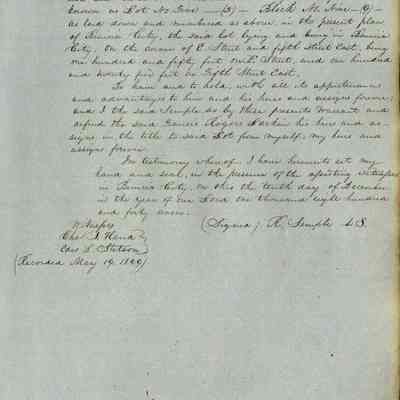 known as Lot No Two — (2) — Block No. Nine — (9) —
as laid down and numbered as above in the present plan
of Benicia City, the said lot lying and being in Benicia
City, on the corner of C Street and fifth Street East, being
one hundred and fifty feet on C Street, and one hundred
and twenty five feet on Fifth Street East.
To have and to hold, with all its appurtenances
and advantages to him and his heirs and assigns forever;
and I the said Semple do by these presents warrant and
defend the said Rogers his heirs and as-
signs in the title to said Lot from myself, my heirs and
assigns forever
In testimony whereof I have hereunto set my
hand and seal, in the presence of the attesting witnesses
in Benicia City, on this the tenth day of December
in the year of our Lord one thousand eight hundred
and forty seven.
Witnesses (Signed) R. Semple L.S.
Chas
Stetson
(Recorded May 19, 1849)